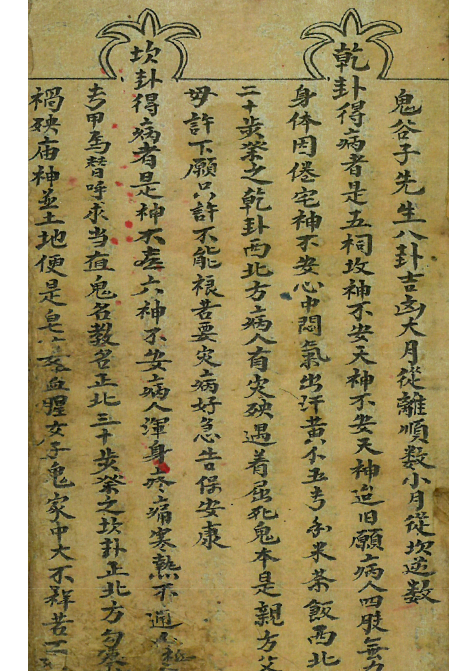 鬼谷子先生八卦吉凶大月從離順数小月從坎逆数
乾卦得病者是五祠坟神不安天神不安天神追旧願病人四肢無
身体困倦宅神不安心中悶氣出汗黄小五方和米茶飯西北
二十步祭之乾卦西北方病人有灾殃遇着屈死鬼本是親方
毋許下願只許不能禳若要灾病好急告保安康
坎卦得病者是神不 六神不安病人渾身疼痛寒熱不通
方甲馬替呼求当直鬼名教名正北三十步祭之坎卦正北方
禍殃庙神並土地便是 血腥女子鬼家中大不祥若